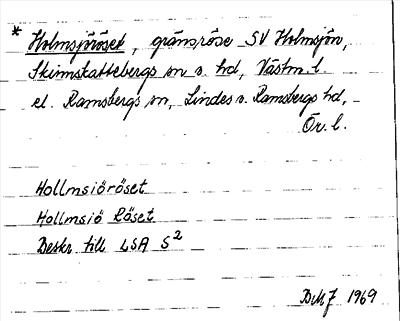 * Holmsjöröset, gränsröse SV Holmsjön,
Skinnskattebergs sn o. hd, Västm. l.
el. Ramsbergs sn, Lindes o. Ramsbergs hd,
Ör. l.
Hollmsiöröset
Hollmsiö Röset
Beskr till LSA S²
1969